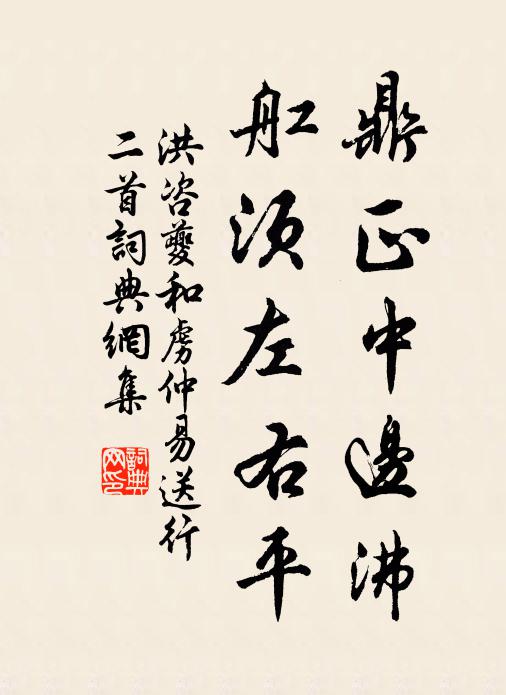 鼎正中邊沸
舡須左右平
洪咨夔和虏仲易送行
二首詞典網集
詞典网印